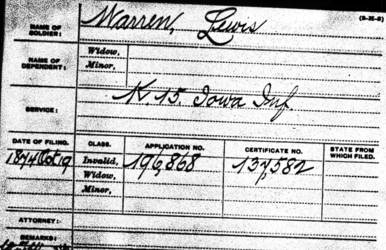 (3-35-3)
NAME OF SOLDIER: Warren, Lewis
NAME OF DEPENDENT: Widow,
Minor,
SERVICE: K. 15. Iowa Inf.
DATE OF FILING. CLASS. APPLICATION NO. CERTIFICATE NO. STATE FROM WHICH FILED.
1874 Oct 19 Invalid, 196,868 137,582
Widow,
Minor,
ATTORNEY:
REMARKS: